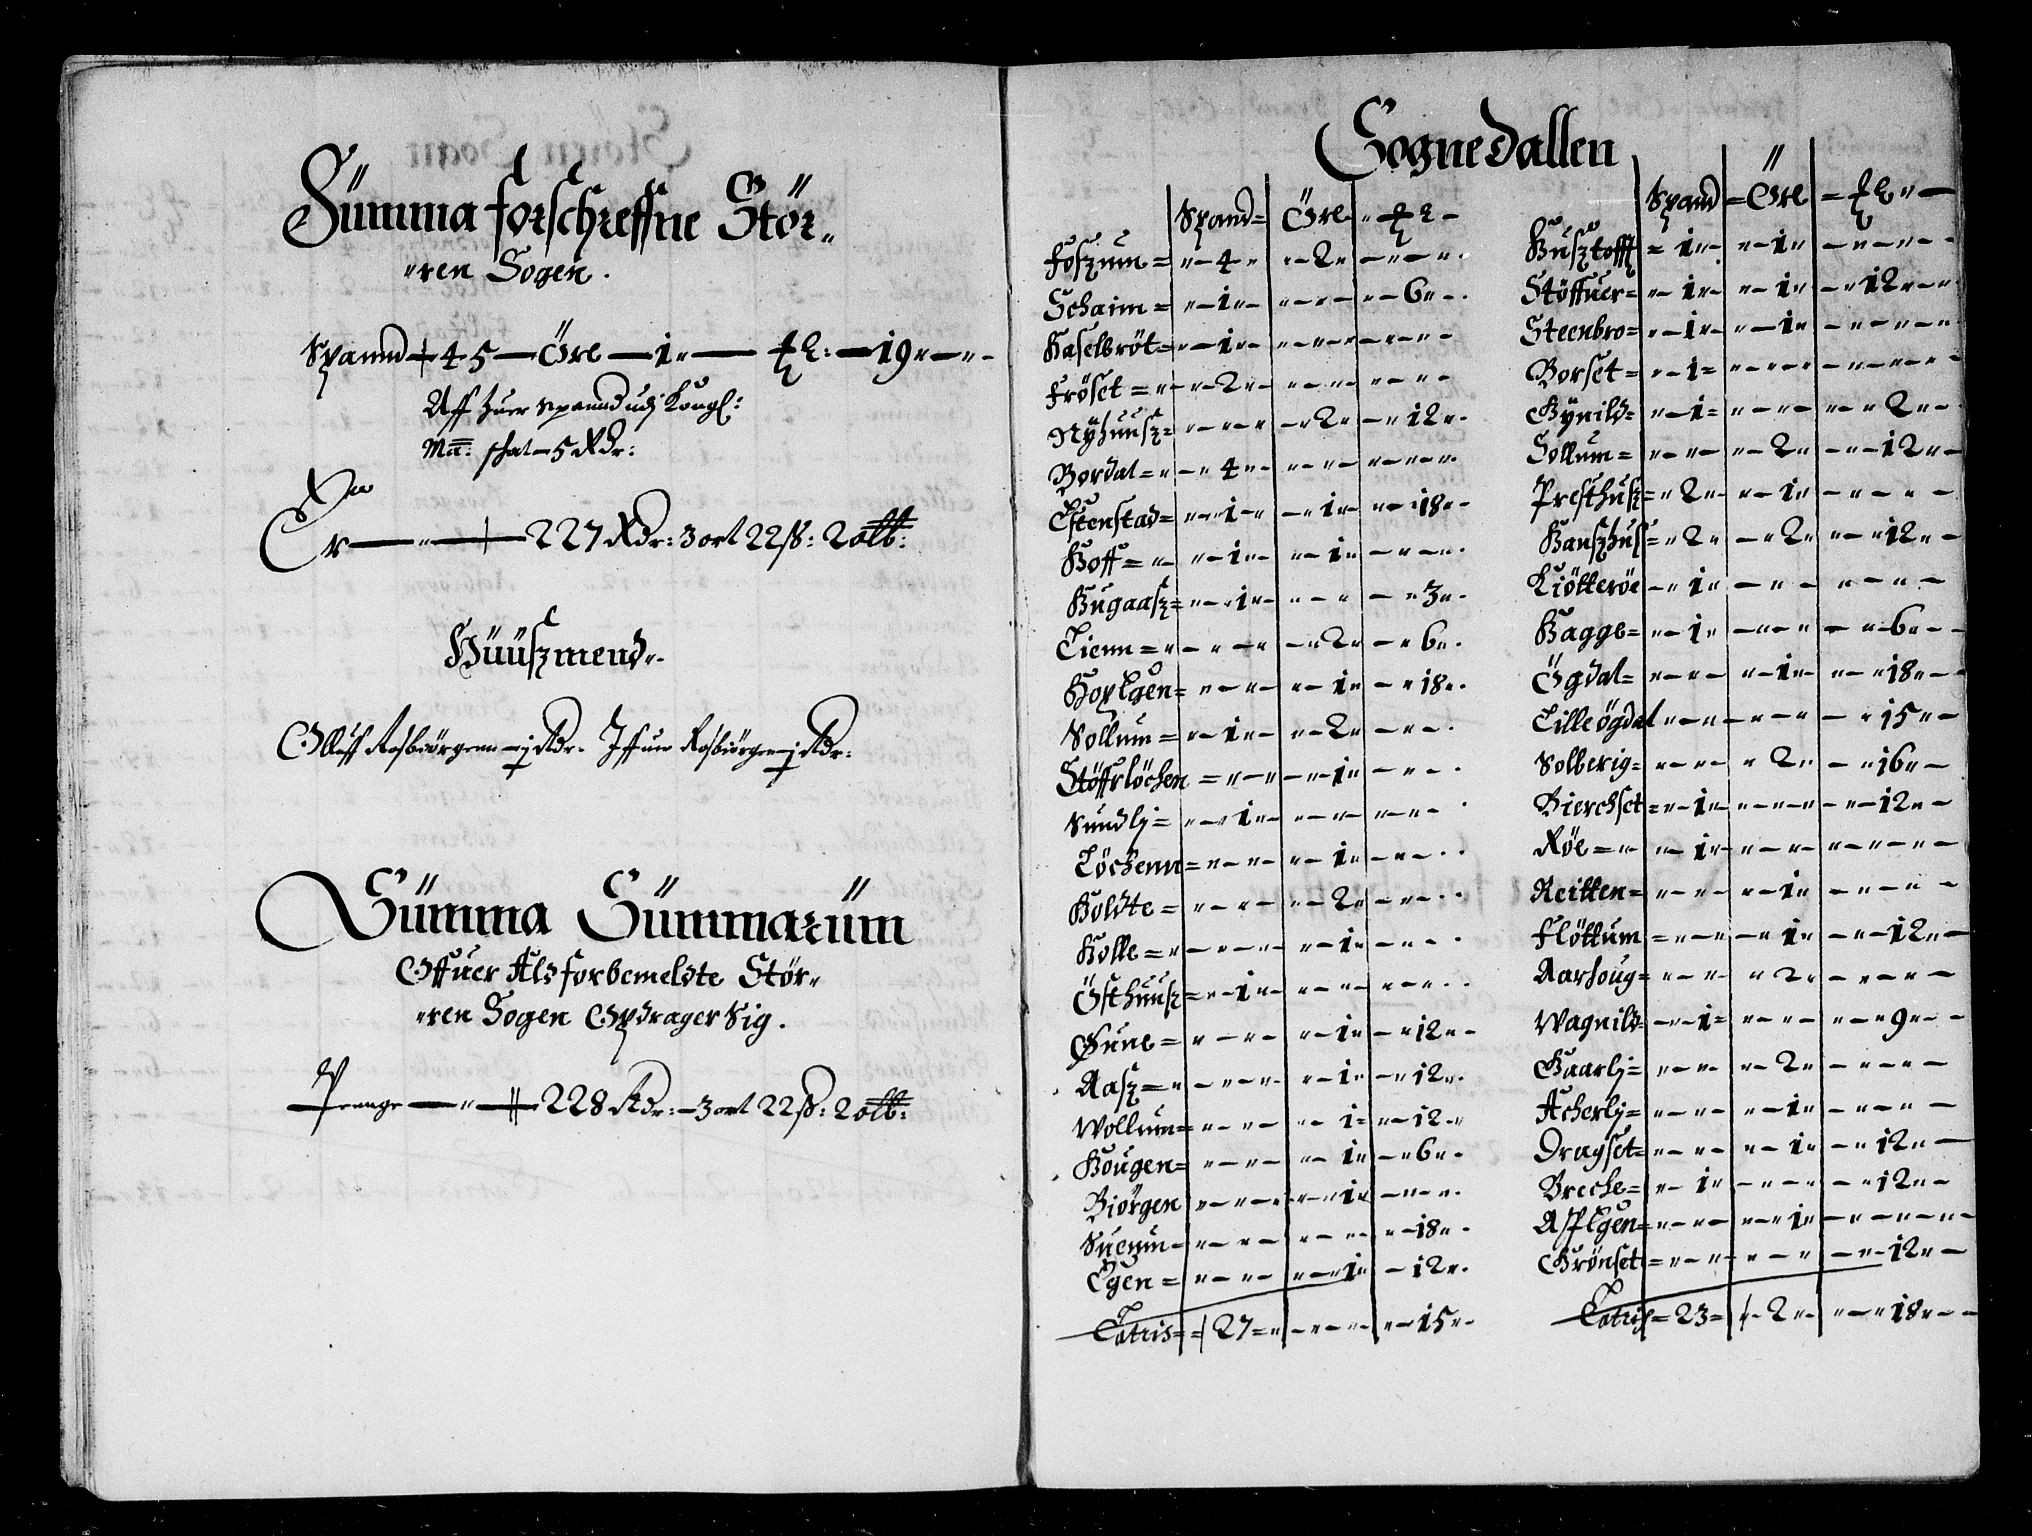 Sümma forschreffne Stör„
„ren Sogen.
Spannd 45 — Öre — 1 — ℔: — 19 —
Aff huer spannd udj Kongl:
Ma: schat — 5 Rdr:
Er — 227 Rdr: 3 ort 22 ß: 2 alb:
Hüüszmend
Olluff Rosbiörgenn — j Rdr. Iffuer Rosbiörgen — j Rdr:
Sümma Sümmarüm
Offuer Ald forbemeldte Stör„
„ren Sogen Opdrager Sig.
Penge — 228 Rdr: — 3 ort 22 ß: 2 alb:
Sognedallen
Spand = Öre ℔
Foszum = 4 2
Schaim = 1 6
Haselbröt = 1
Fröset = 2
Nyhuusz 2 12
Bordal = 4
Estenstad = 1 1 18
Hoff = 1 1
Bugaasz = 1 3
Tienn = 2 6
Hoxlgen = 1 18
Sollum = 1 2
Stöffrlöchen = 1
Sundlj = 1
Löchenn = 1
Holdte = 2
Holle = 1
Östhuusz = 1
Gune = 1 12
Aasz = 1 12
Wollum = 1 12
Hougen = 1 6
Biörgen 1
Suenn 18
Egen = 1 12
Latris = 27 15
Spand = Öre = ℔
Husztofft = 1 1
Stöffuer = 1 1 12
Steenbro = 1 1
Borset = 1
Gynild = 1 2
Sollum = 2 12
Presthusz = 2 1
Hauszhus = 2 2 12
Kiötteröe 1
Hagge = 1 6
Ögdal = 1 18
Lille ögdal 15
Solberig = 2 16
Bierchset = 1 12
Röe = 1
Reitten = 1
Flöttum = 1 12
Aarhoug = 2
Wagnild 1 9
Gaarlj = 2
Acherlj = 1
Dragset = 1 12
Breche = 1 12
Asplgen 1
Grönset = 12
Latris = 23 2 18